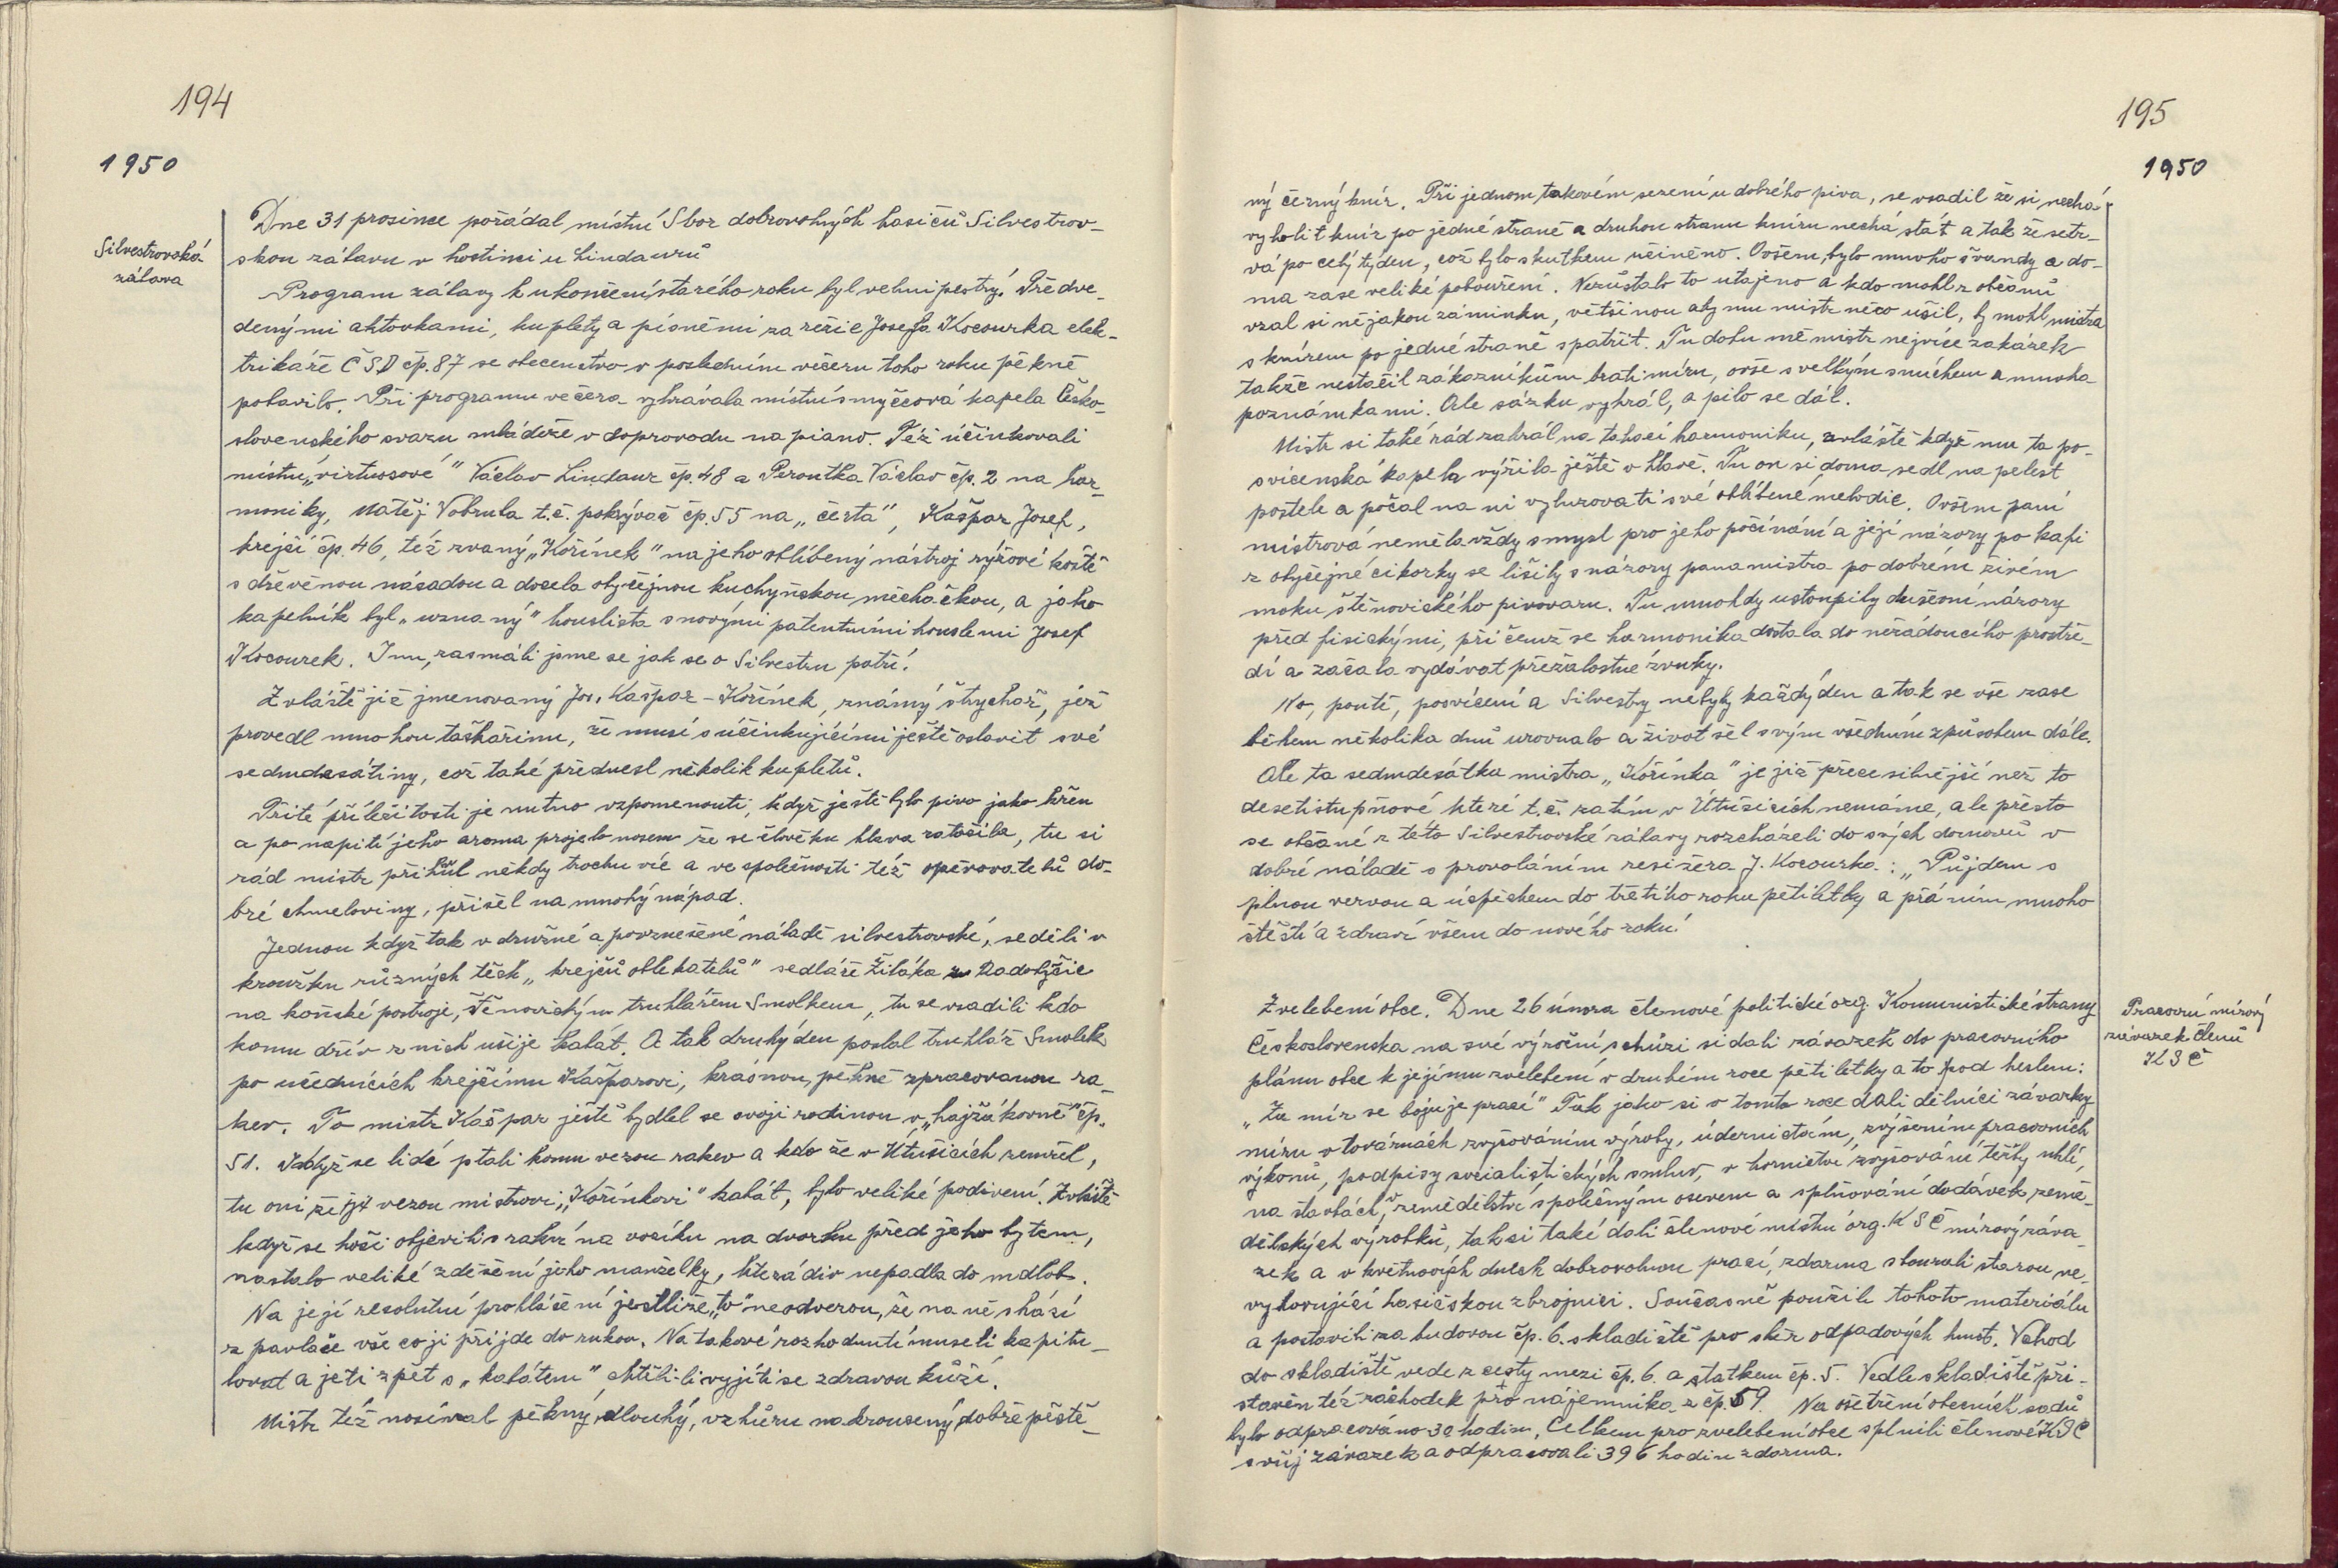 194
1950
Silvestrovská
zábava
Dne 31 prosince pořádal místní Sbor dobrovolných hasičů Silvestrov-
skou zábavu v hostinci u Lindaurů
Program zábavy k ukončení starého roku byl velmi pestrý. Předve-
denými aktovkami, kuplety a písněmi za režie Josefa Kocourka elek-
trikáře ČSD čp. 87 se obecenstvo v posledním večeru toho roku pěkně
pobavilo. Při programu večera vyhrávala místní smyčcová kapela Česko-
slovenského svazu mládeže v doprovodu na piano. Též účinkovali
místní „virtuosové" Václav Lindaur čp. 48 a Peroutka Václav čp. 2 na har-
moniky, Matěj Vobruba t.č. pokrývač čp. 55 na „čerta", Kašpar Josef,
krejčí čp. 46, též zvaný „Kořínek" na jeho oblíbený nástroj rýžové koště
s dřevěnou násadou a docela obyčejnou kuchyňskou měchačkou, a jako
kapelník byl „uznaný" houslista s novými patentními houslemi Josef
Kocourek. Inu, zasmáli jsme se jak se o Silvestru patří.
Zvláště již jmenovaný Jos. Kašpar - Kořínek, známý štychař, jež
provedl mnohou taškařinu, že musí s účinkujícími ještě oslavit své
sedmdesátiny, což také přednesl několik kupletů.
Při té příležitosti je nutno vzpomenouti, když ještě bylo pivo jako křen
a po napití jeho aroma projelo nosem že se člověku hlava zatočila, tu si
rád mistr přihnul někdy trochu víc a ve společnosti též opěvovatelů do-
bré chmeloviny, přišel na mnohý nápad.
Jednou když tak v družné a povznešené náladě silvestrovské, seděli v
kroužku různých těch „krejčů oblekatelů" sedláře Žiláka z Radobyčic
na koňské postroje, Štěnovickým truhlářem Smolkem, tu se vsadili kdo
komu dřív z nich ušije kabát. A tak druhý den poslal truhlář Smolek
po učednících krejčímu Kašparovi, krásnou, pěkně zpracovanou ra-
kev. To mistr Kašpar ještě bydlel se svojí rodinou v „hajžákovně" čp.
51. Když se lidé ptali komu vezou rakev a kdo že v Útušicích zemřel,
tu oni že vezou mistrovi „Kořínkovi" kabát, bylo veliké podivení. Zvláště
když se hoši objevili s rakví na vozíku na dvorku před jeho bytem,
nastalo veliké zděšení jeho manželky, která div nepadla do mdlob.
Na její resolutní prohlášení jestliže „to" neodvezou, že na ně shází
z pavlače vše co jí přijde do rukou. Na takové rozhodnutí museli kapitu-
lovat a jeti zpět s „kabátem" chtěli-li vyjíti se zdravou kůží.
Mistr též nosíval pěkný, dlouhý, vzhůru nakroucený dobře pěstě-
195
1950
ný černý knír. Při jednom takovém sezení u dobrého piva, se vsadil že si nechá
vyholit knír po jedné straně a druhou stranu kníru nechá stát a tak že setr-
vá po celý týden, což bylo skutkem učiněno. Ovšem, bylo mnoho švandy a do-
ma zase veliké pobouření. Nezůstalo to utajeno a kdo mohl z občanů
vzal si nějakou záminku, většinou aby mu mistr něco ušil, by mohl mistra
s knírem po jedné straně spatřit. Tu dobu měl mistr nejvíce zakázek
takže nestačil zákazníkům brati míru, ovše s velkým smíchem a mnoha
poznámkami. Ale sázku vyhrál, a pilo se dál.
Mistr si také rád zahrál na tahací harmoniku, zvláště když mu ta po-
svícenská kapela výřila ještě v hlavě. Tu on si doma sedl na pelest
postele a počal na ni vyluzovati své oblíbené melodie. Ovšem paní
mistrová neměla vždy smysl pro jeho počínání a její názory po kafi
z obyčejné cikorky se lišily s názory pana mistra po dobrém živém
moku štěnovického pivovaru. Tu mnohdy ustoupily duševní názory
před fisickými, při čemž se harmonika dostala do nežádoucího prostře-
dí a začala vydávat přežalostné zvuky.
No, poutě, posvícení a Silvestry nebyly každý den a tak se vše zase
během několika dnů urovnalo a život šel svým všedním způsobem dále.
Ale ta sedmdesátka mistra „Kořínka" je již přece silnější než to
desetistupňové které t.č. zatím v Útušicích nemáme, ale přesto
se občané z této Silvestrovské zábavy rozcházeli do svých domovů v
dobré náladě s provoláním resižéra J. Kocourka: „Půjdem s
plnou vervou a úspěchem do třetího roku pětiletky a přáním mnoho
štěstí a zdraví všem do nového roku!
Pracovní mírový
závazek členů
KSČ
Zvelebení obce. Dne 26 února členové politické org. Komunistické strany
Československa na své výroční schůzi si dali závazek do pracovního
plánu obce k jejímu zvelebení v druhém roce pětiletky a to pod heslem:
„Za mír se bojuje prací" Tak jako si v tomto roce dali dělníci závazky
míru v továrnách zvyšováním výroby, údernictvím, zvýšením pracovních
výkonů, podpisy socialistických smluv, v hornictví zvyšování těžby uhlí,
na stavbách, v zemědělství společným osevem a splňování dodávek země-
dělských výrobků, tak si také dali členové místní org. KSČ mírový záva-
zek a v květnových dnech dobrovolnou prací, zdarma zbourali starou ne-
vyhovující hasičskou zbrojnici. Současně použili tohoto materiálu
a postavili za budovou čp. 6. skladiště pro sběr odpadových hmot. Vchod
do skladiště vede z cesty mezi čp. 6. a statkem čp. 5. Vedle skladiště při-
stavěn též záchodek pro nájemníka z čp. 59. Na ošetření obecních sadů
bylo odpracováno 30 hodin. Celkem pro zvelebení obce splnili členové KSČ
svůj závazek a odpracovali 396 hodin zdarma.